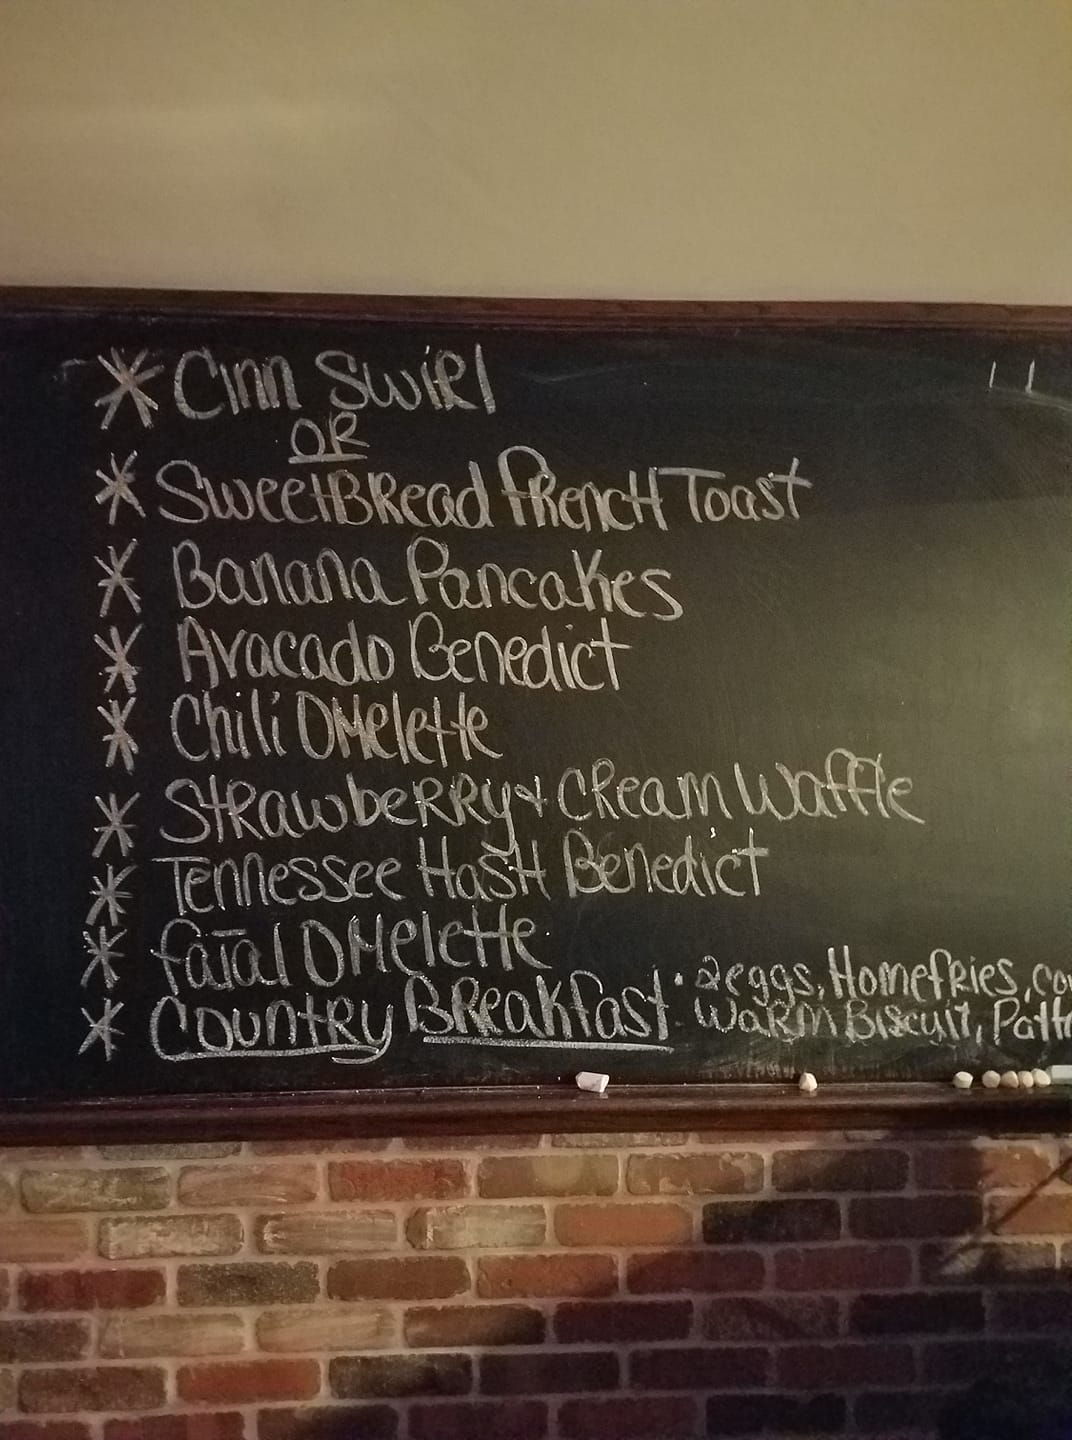 * Cinn Swirl
OR
* SweetBread French Toast
* Banana Pancakes
* Avacado Benedict
* Chili Omelette
* Strawberry & Cream Waffle
* Tennessee Hash Benedict
* Fatal Omelette
* Country Breakfast · 2 eggs, Homefries, co
Warm Biscuit, Patt